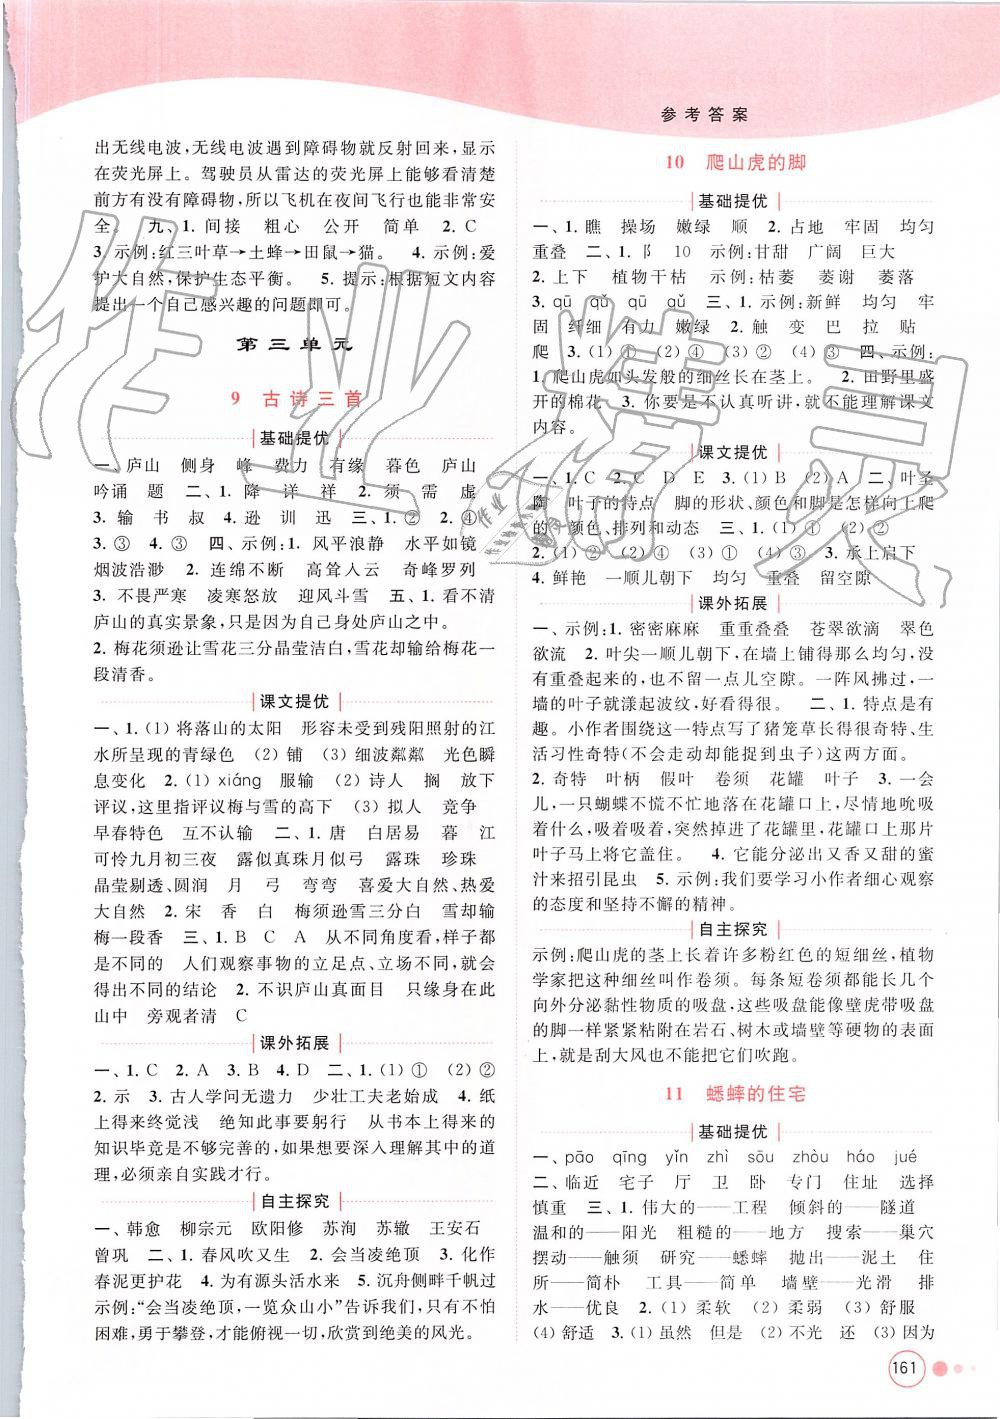 参考答案
出无线电波,无线电波遇到障碍物就反射回来,显示
在荧光屏上。驾驶员从雷达的荧光屏上能够看清楚
前方有没有障碍物,所以飞机在夜间飞行也能非常安
全。 九、1. 间接 粗心 公开 简单 2. C
3. 示例:红三叶草→土蜂→田鼠→猫。 4. 示例:爱
护大自然,保护生态平衡。 5. 提示:根据短文内容
提出一个自己感兴趣的问题即可。
第三单元
9 古诗三首
基础提优
一、庐山 侧身 峰 费力 有缘 暮色 庐山
吟诵 题 二、1. 降 详 祥 2. 须 需 虚
3. 输 书 叔 4. 逊 训 迅 三、1. ② 2. ④
3. ③ 4. ③ 四、示例:1. 风平浪静 水平如镜
烟波浩渺 2. 连绵不断 高耸入云 奇峰罗列
3. 不畏严寒 凌寒怒放 迎风斗雪 五、1. 看不清
庐山的真实景象,只是因为自己身处庐山之中。
2. 梅花须逊让雪花三分晶莹洁白,雪花却输给梅花一
段清香。
课文提优
一、1. (1) 将落山的太阳 形容未受到残阳照射的江
水所呈现的青绿色 (2) 铺 (3) 细波粼粼 光色瞬
息变化 2. (1) xiáng 服输 (2) 诗人 搁 放下
评议,这里指评议梅与雪的高下 (3) 拟人 竞争
早春特色 互不认输 二、1. 唐 白居易 暮 江
可怜九月初三夜 露似真珠月似弓 露珠 珍珠
晶莹剔透、圆润 月 弓 弯弯 喜爱大自然、热爱
大自然 2. 宋 香 白 梅须逊雪三分白 雪却输
梅一段香 三、1. B C A 从不同角度看,样子都
是不同的 人们观察事物的立足点、立场不同,就会
得出不同的结论 2. 不识庐山真面目 只缘身在此
山中 旁观者清 C
课外拓展
一、1. C 2. A 3. B 4. D 二、1. (1) ① (2) ②
2. 示 3. 古人学问无遗力 少壮工夫老始成 4. 纸
上得来终觉浅 绝知此事要躬行 从书本上得来的
知识毕竟是不够完善的,如果想要深入理解其中的道
理,必须亲自实践才行。
自主探究
一、韩愈 柳宗元 欧阳修 苏洵 苏辙 王安石
曾巩 二、1. 春风吹又生 2. 会当凌绝顶 3. 化作
春泥更护花 4. 为有源头活水来 5. 沉舟侧畔千帆过
示例:“会当凌绝顶,一览众山小”告诉我们,只有不怕
困难,勇于攀登,才能俯视一切,欣赏到绝美的风光。
10 爬山虎的脚
基础提优
一、1. 瞧 操场 嫩绿 顺 2. 占地 牢固 均匀
重叠 二、1. 阝 10 示例:甘甜 广阔 巨大
2. 上下 植物干枯 示例:枯萎 萎谢 萎落
3. qū qǔ qū qǔ 三、1. 示例:新鲜 均匀 牢
固 纤细 有力 嫩绿 2. 触 变 巴 拉 贴
爬 3. (1) ① (2) ④ (3) ② (4) ③ 四、示例:
1. 爬山虎如头发般的细丝长在茎上。 2. 田野里盛
开的棉花 3. 你要是不认真听讲,就不能理解课文
内容。
课文提优
一、1. C 2. C D E 3. (1) B (2) A 二、叶圣
陶 叶子的特点 脚的形状、颜色和脚是怎样向上爬
的 颜色、排列和动态 三、1. (1) ① (2) ②
2. (1) ① (2) ① (3) ② 3. 承上启下
4. 鲜艳 一顺儿朝下 均匀 重叠 留空隙
课外拓展
一、示例:1. 密密麻麻 重重叠叠 苍翠欲滴 翠色
欲流 2. 叶尖一顺儿朝下,在墙上铺得那么均匀,没
有重叠起来的,也不留一点儿空隙。一阵风拂过,一
墙的叶子就漾起波纹,好看得很。 二、1. 特点是有
趣。小作者围绕这一特点写了猪笼草长得很奇特、生
活习性奇特(不会走动却能捉到虫子)这两方面。
2. 奇特 叶柄 假叶 卷须 花罐 叶子 3. 一会
儿,一只蝴蝶不慌不忙地落在花罐口上,津津有味地吮吸
着什么,吸着吸着,突然掉进了花罐里,花罐口上那片
叶子马上将它盖住。 4. 它能分泌出又香又甜的蜜
汁来招引昆虫 5. 示例:我们要学习小作者细心观察
的态度和坚持不懈的精神。
自主探究
示例:爬山虎的茎上长着许多粉红色的短细丝,植物
学家把这种细丝叫作卷须。每条短卷须都能长几个
向外分泌黏性物质的吸盘,这些吸盘能像壁虎带吸盘
的脚一样紧紧粘附在岩石、树木或墙壁等硬物的表面
上,就是刮大风也不能把它们吹跑。
11 蟋蟀的住宅
基础提优
一、pāo qīng yǐn zhì sōu zhòu háo jué
二、临近 宅子 厅 卫 卧 专门 住址 选择
慎重 三、1. 伟大的——工程 倾斜的——隧道
温和的——阳光 粗糙的——地方 搜索——巢穴
摆动——触须 研究——蟋蟀 抛出——泥土 住
所——简朴 工具——简单 墙壁——光滑 排
水——优良 2. (1) 柔软 (2) 柔弱 (3) 舒服
(4) 舒适 3. (1) 虽然 但是 (2) 不光 还 (3) 因为
161
作业精灵